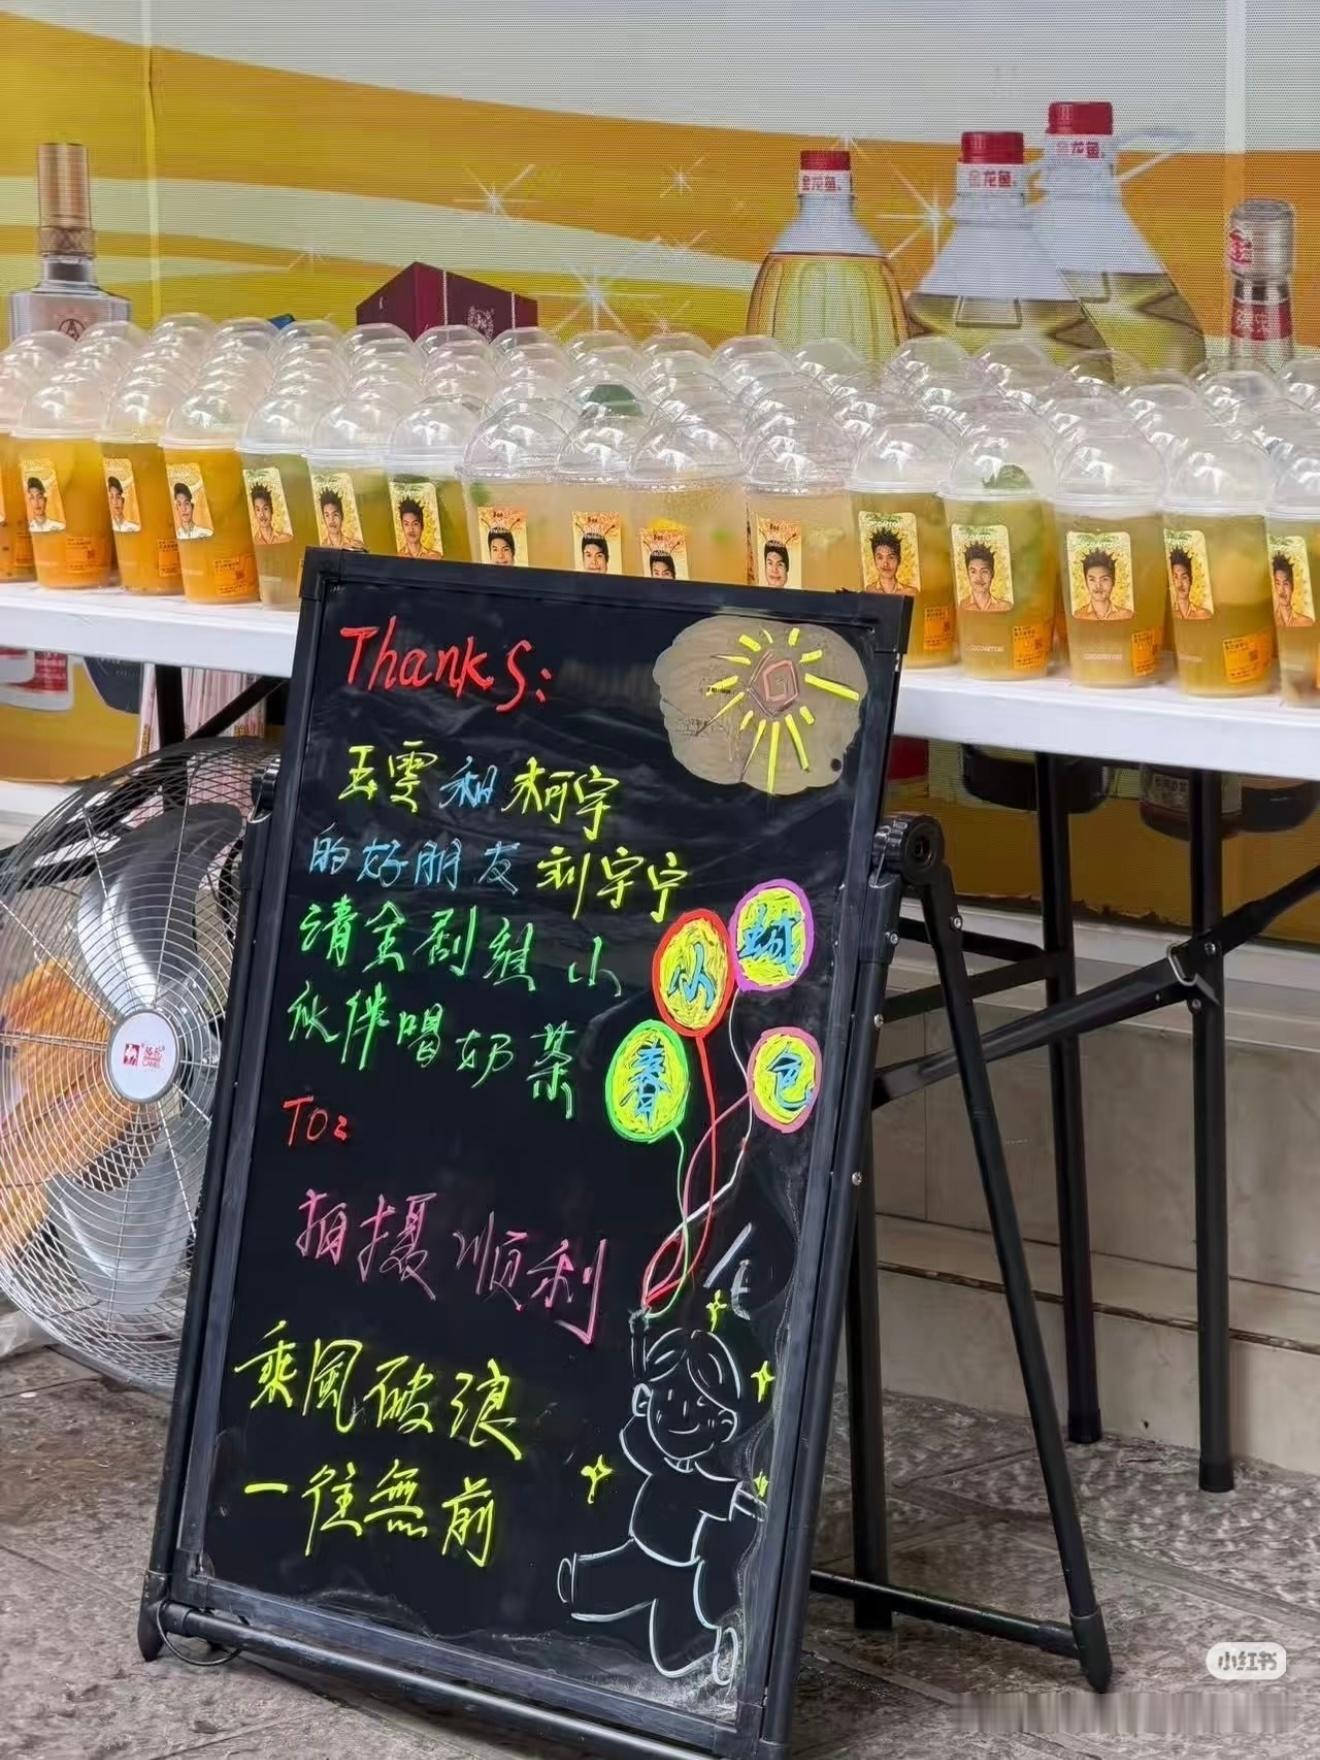 金龙鱼
金龙鱼
金龙鱼
Thanks:
玉雯和柯宇
的好朋友刘宇宁
请全剧组小
伙伴喝奶茶
小城
春色
To:
拍摄顺利
乘風破浪
一往無前
小红书